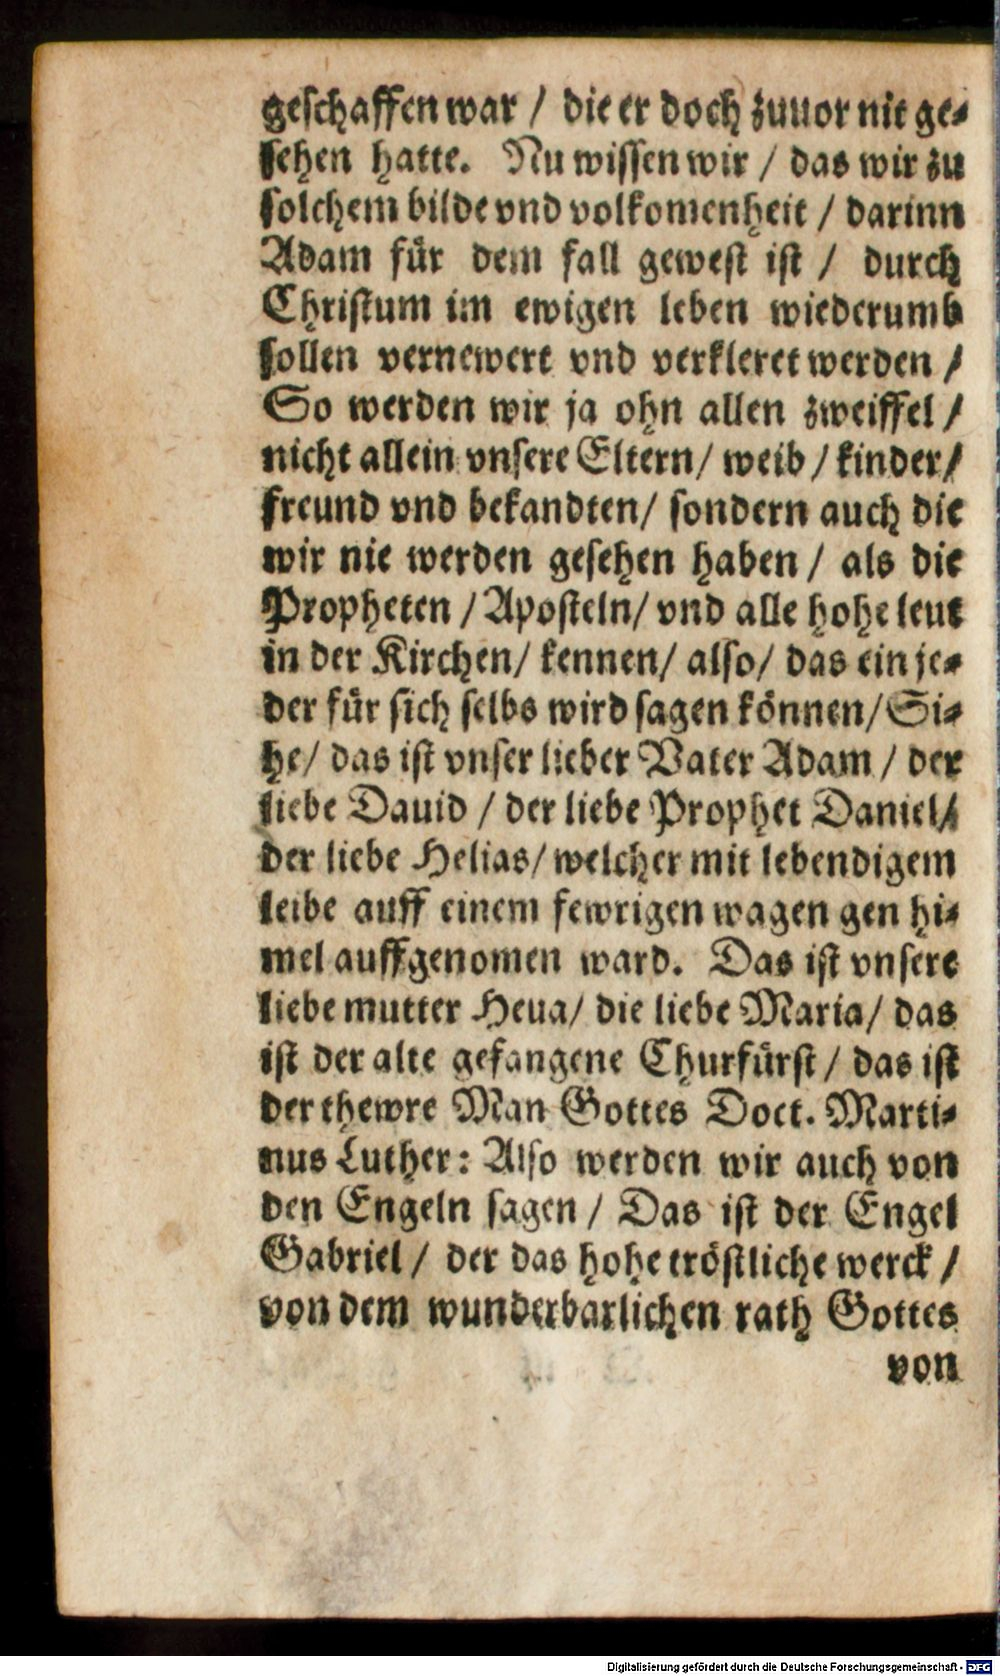 geschaffen war / die er doch zuuor nit ge-
sehen hatte. Nu wissen wir / das wir zu
solchem bilde vnd volkomenheit / darinn
Adam für dem fall gewest ist / durch
Christum im ewigen leben wiederumb
sollen vernewert vnd verkleret werden /
So werden wir ja ohn allen zweiffel /
nicht allein vnsere Eltern / weib / kinder /
freund vnd bekandten / sondern auch die
wir nie werden gesehen haben / als die
Propheten / Aposteln / vnd alle hohe leut
in der Kirchen / kennen / also / das ein je-
der für sich selbs wird sagen können / Si-
he / das ist vnser lieber Vater Adam / der
liebe Dauid / der liebe Prophet Daniel /
der liebe Helias / welcher mit lebendigem
leibe auff einem fewrigen wagen gen hi-
mel auffgenomen ward. Das ist vnsere
liebe mutter Heua / die liebe Maria / das
ist der alte gefangene Churfürst / das ist
der thewre Man Gottes Doct. Marti-
nus Luther: Also werden wir auch von
den Engeln sagen / Das ist der Engel
Gabriel / der das hohe tröstliche werck /
von dem wunderbarlichen rath Gottes
von
Digitalisierung gefördert durch die Deutsche Forschungsgemeinschaft - DFG